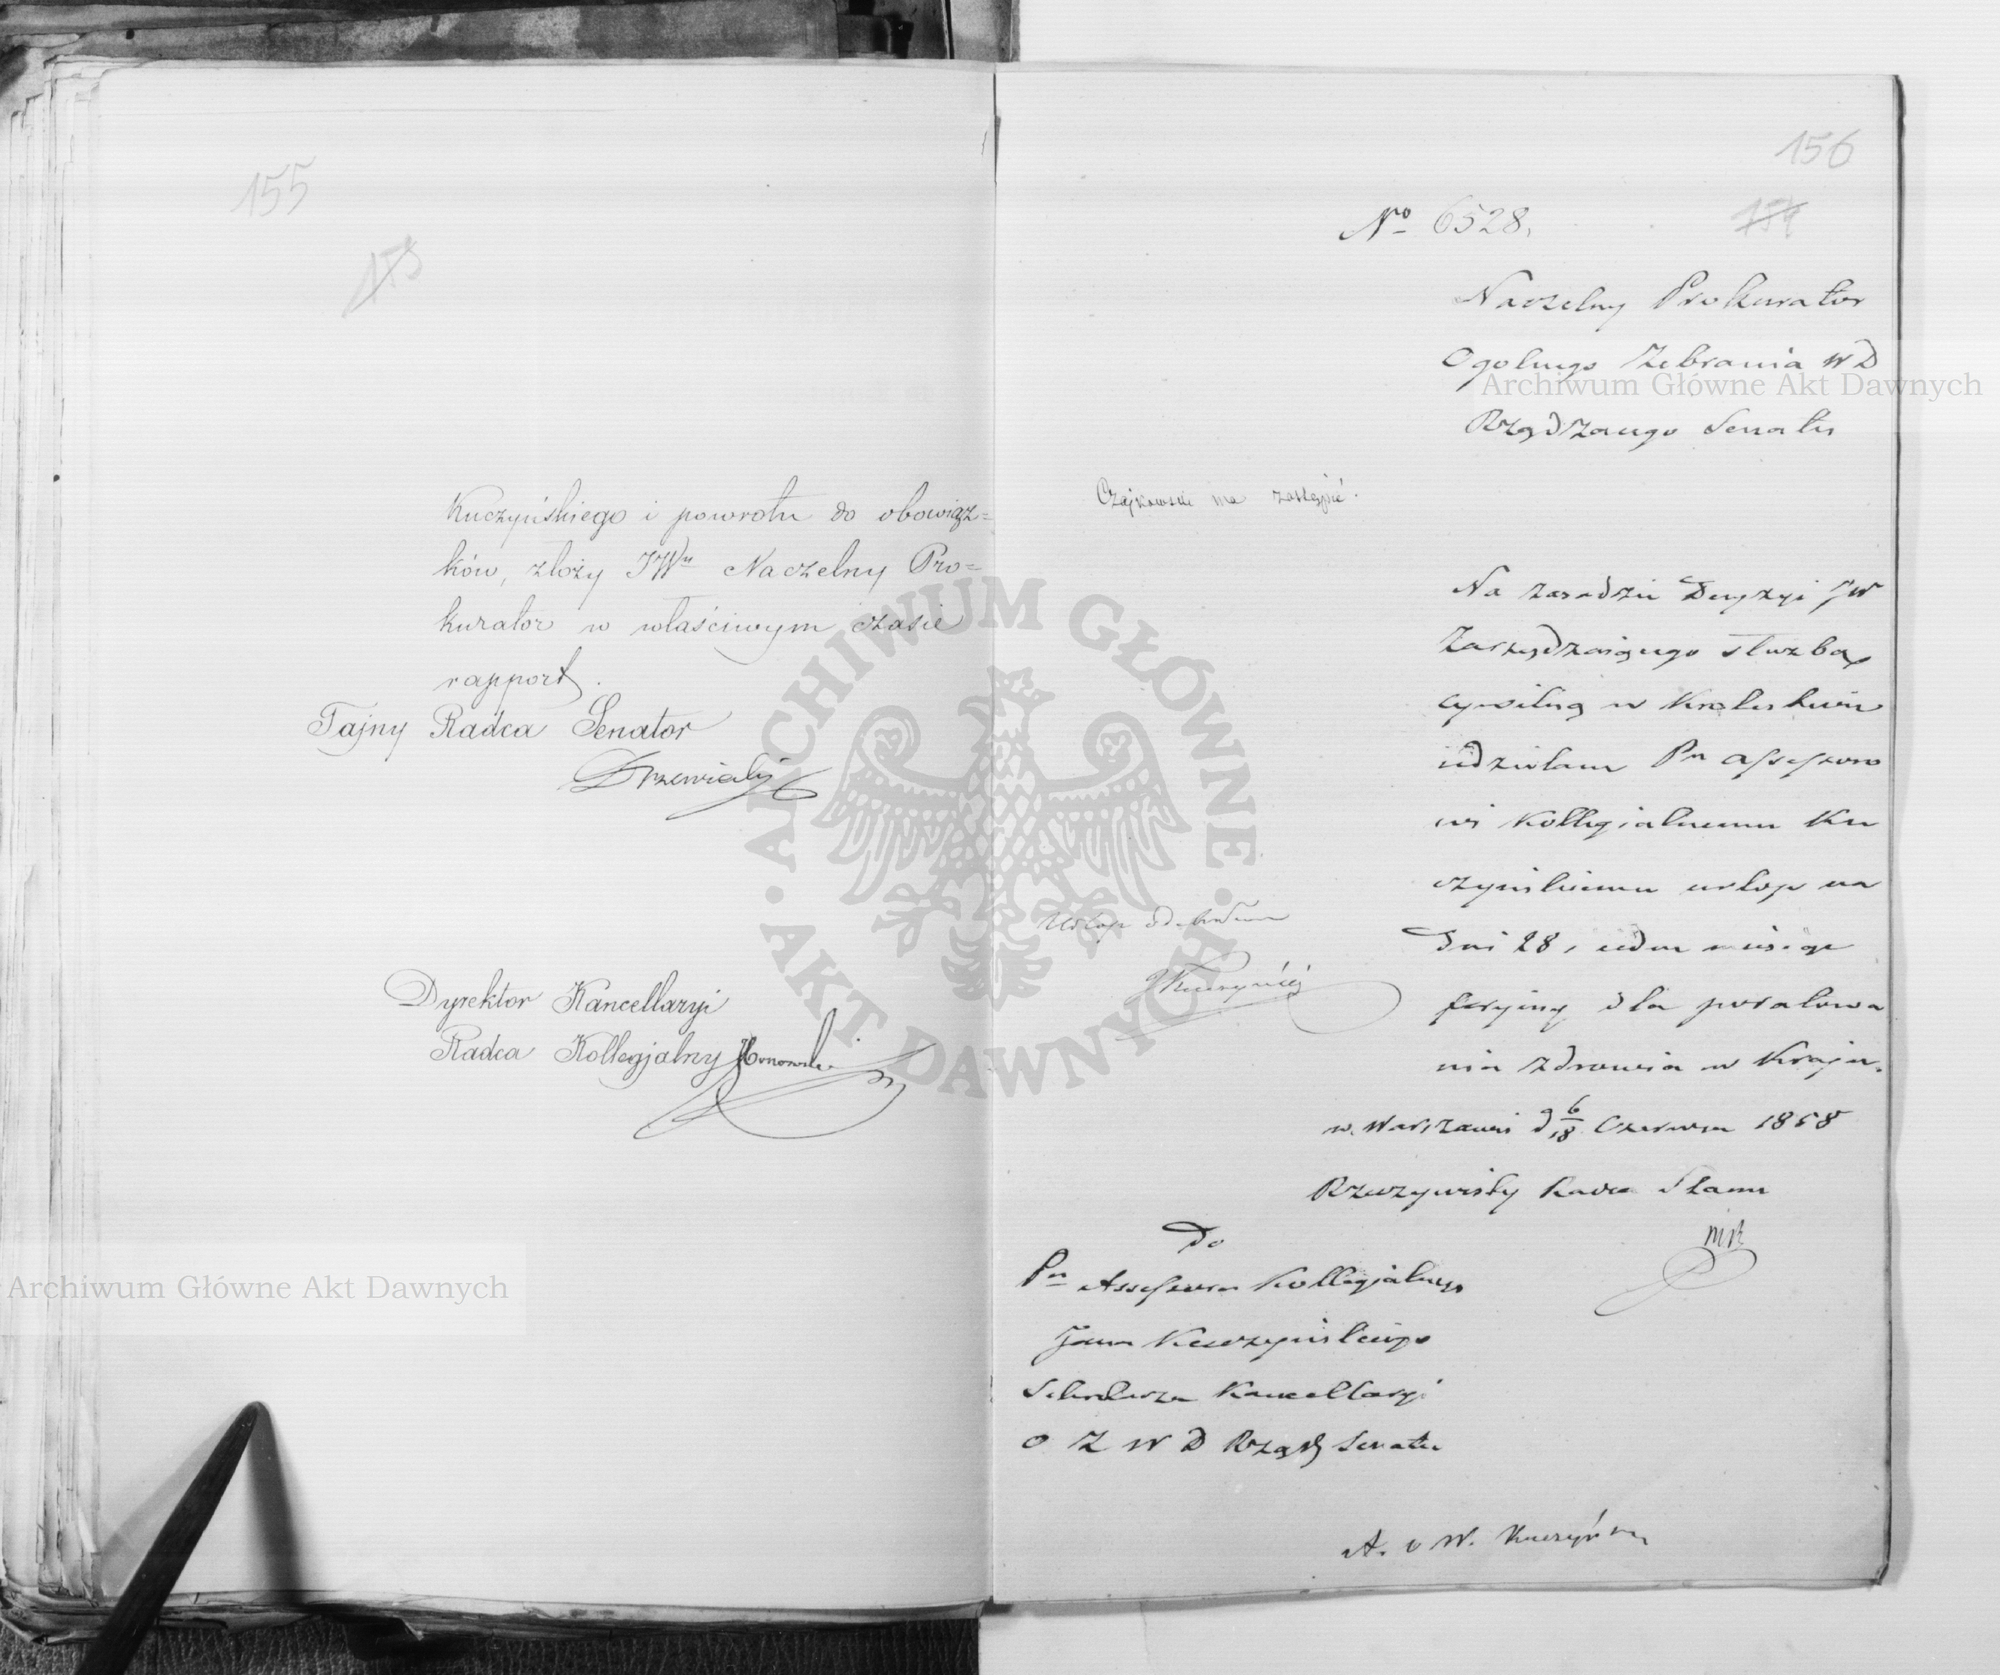 155
153
Kuczyńskiego i powrotu do obowiąz=
ków, złoży JWny Naczelny Pro=
kurator w właściwym czasie
rapport.
Tajny Radca Senator
Drzewiecki
Dyrektor Kancellaryi
Radca Kollegjalny
156
154
No 6528.
Naczelny Prokurator
Ogolnego Zebrania WD
Rządzącego Senatu
Czajkowski ma zastąpić.
Na zasadzie Decyzyi JW
Zarządzaiącego służbą
cywilną w Krolestwie
udzielam Pn Assessoro
wi Kollegialnemu Ku
czyńskiemu urlop na
dni 28, ieden miesiąc
feryiny dla poratowa
nia zdrowia w Kraju.
w Warszawie d 6/18 Czerwca 1858
Rzeczywisty Radca Stanu
Urlop odebrałem
JKuczyński
Do
Pn Assessora Kollegjalnego
Jana Kuczyńskiego
Sekretarza Kancellaryi
O Z W D Rządz Senatu
A. v W. Kuczyński
Archiwum Główne Akt Dawnych
Archiwum Główne Akt Dawnych
ARCHIWUM GŁÓWNE · AKT DAWNYCH ·